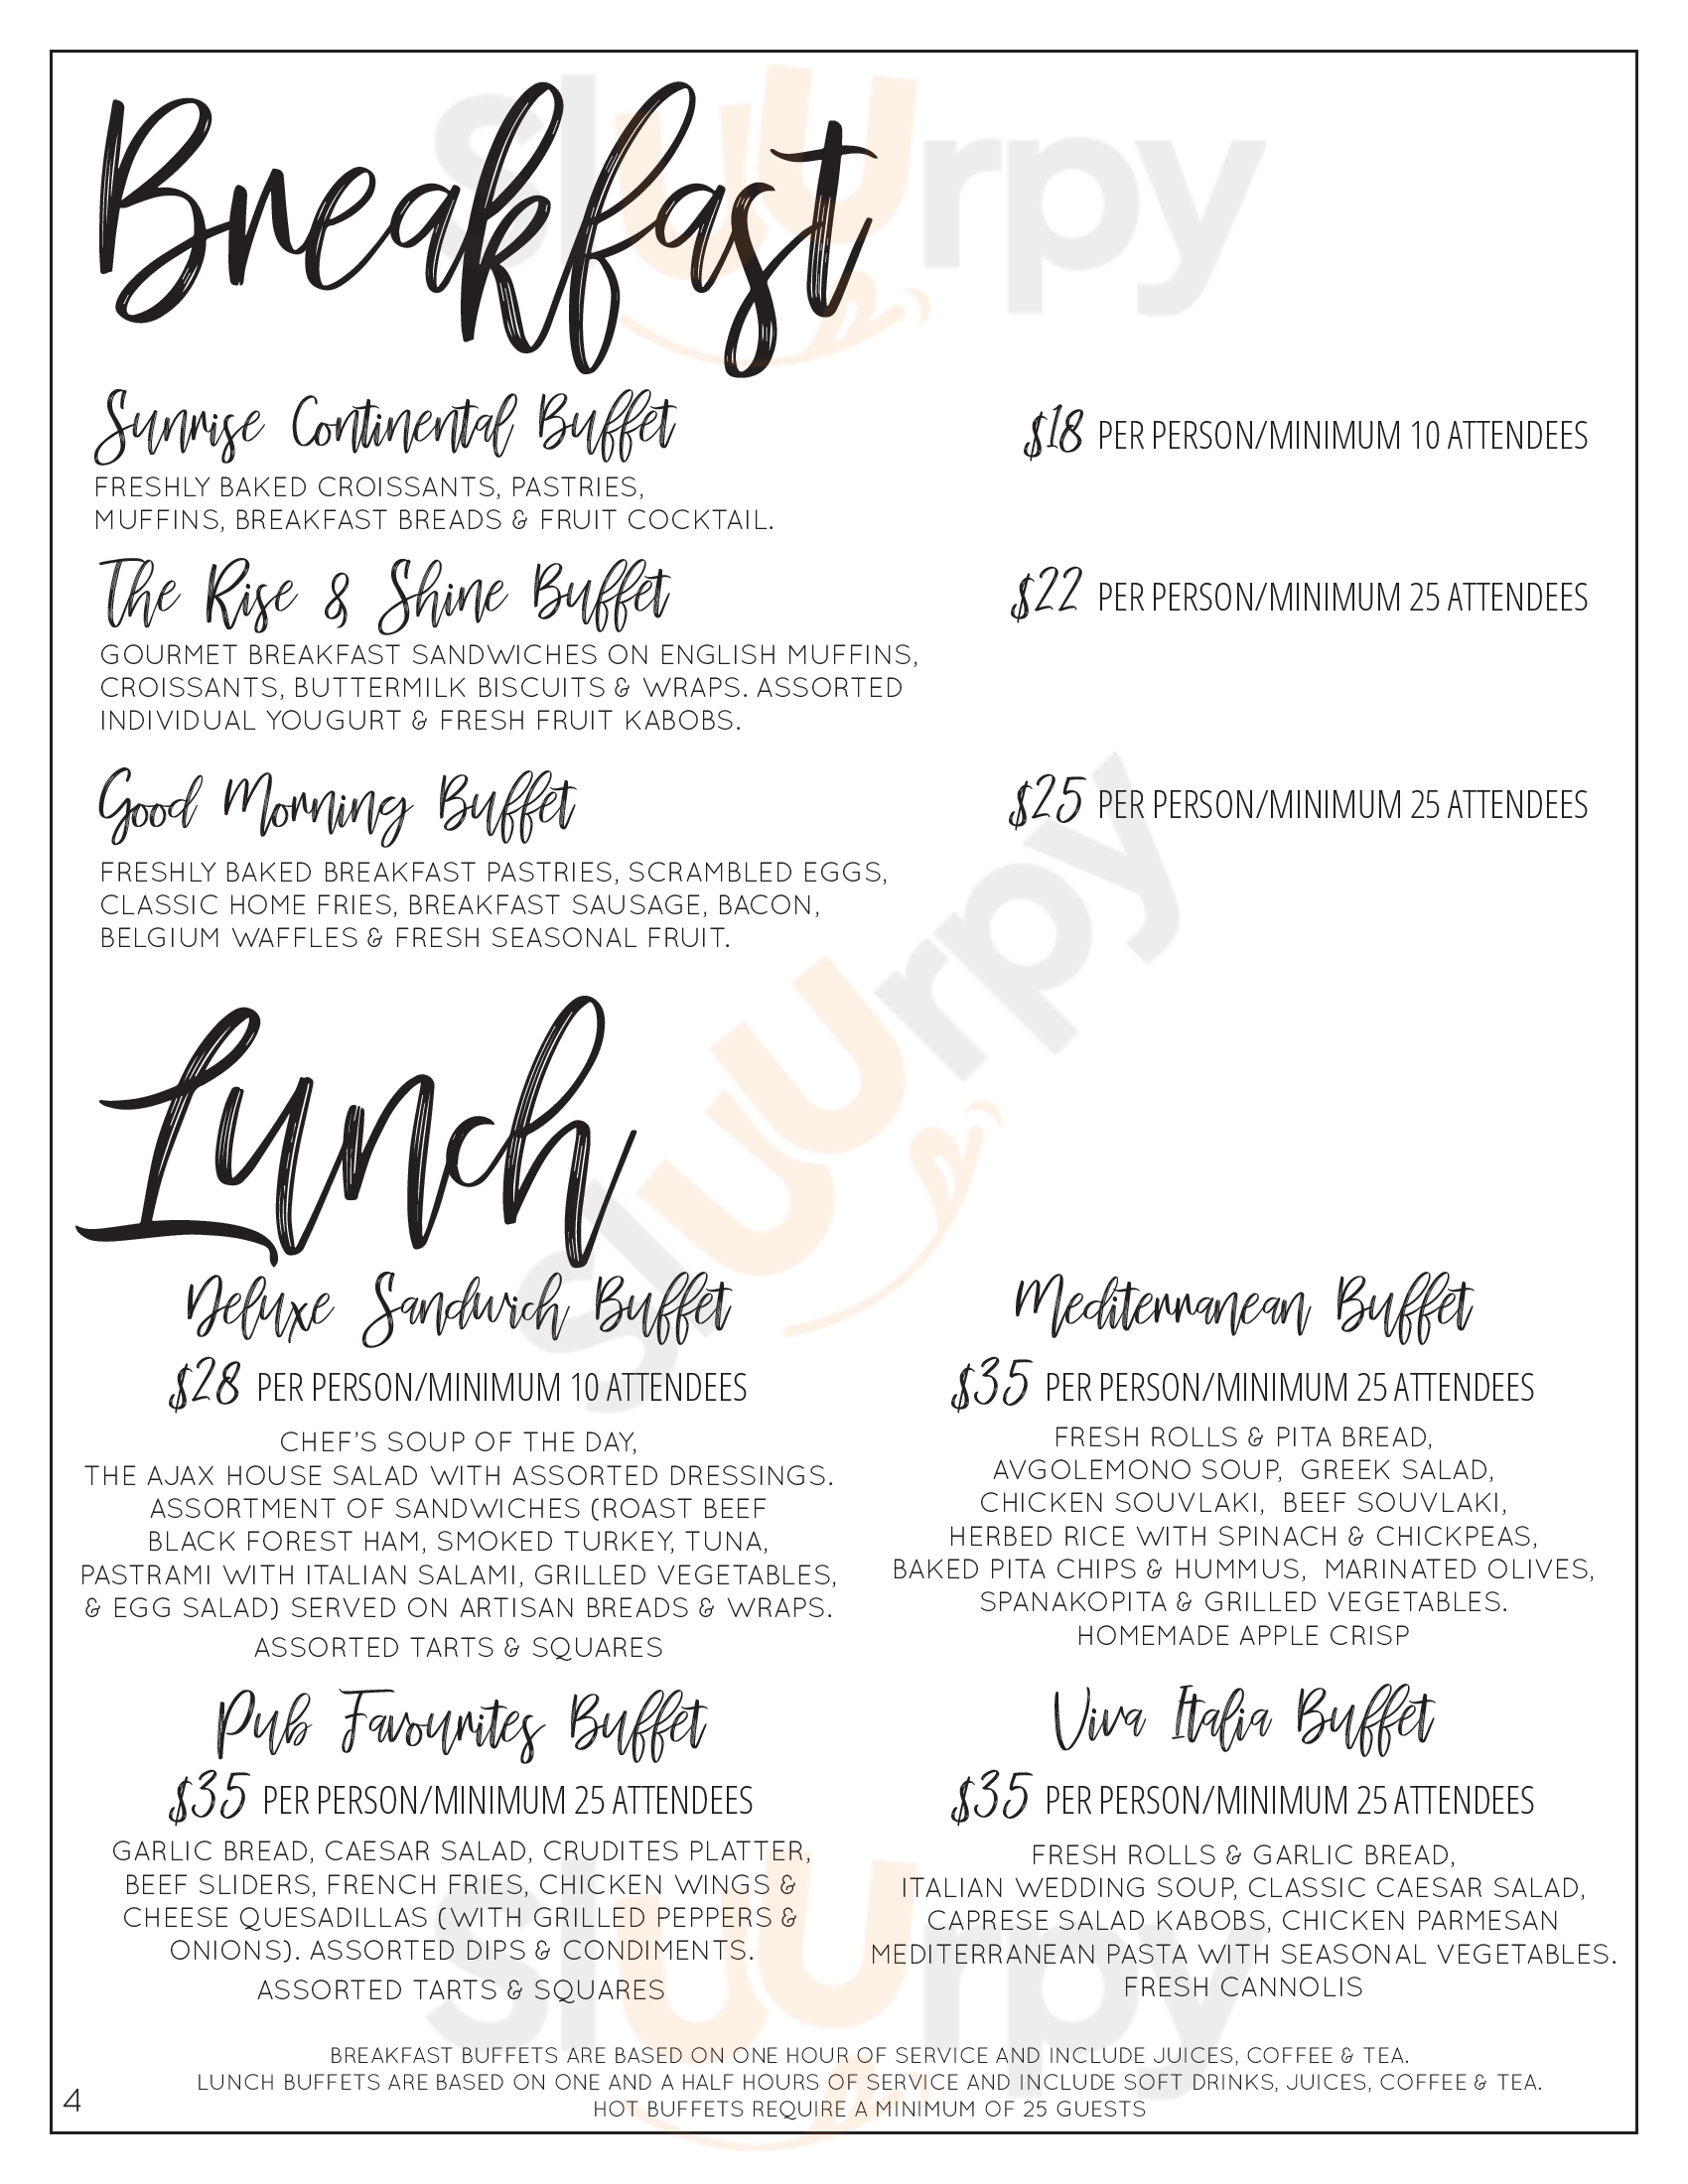 sluurpy
Breakfast
Sunrise Continental Buffet
$18 PER PERSON/MINIMUM 10 ATTENDEES
FRESHLY BAKED CROISSANTS, PASTRIES,
MUFFINS, BREAKFAST BREADS & FRUIT COCKTAIL.
The Rise & Shine Buffet
$22 PER PERSON/MINIMUM 25 ATTENDEES
GOURMET BREAKFAST SANDWICHES ON ENGLISH MUFFINS,
CROISSANTS, BUTTERMILK BISCUITS & WRAPS. ASSORTED
INDIVIDUAL YOUGURT & FRESH FRUIT KABOBS.
Good Morning Buffet
$25 PER PERSON/MINIMUM 25 ATTENDEES
FRESHLY BAKED BREAKFAST PASTRIES, SCRAMBLED EGGS,
CLASSIC HOME FRIES, BREAKFAST SAUSAGE, BACON,
BELGIUM WAFFLES & FRESH SEASONAL FRUIT.
sluurpy
Lunch
Deluxe Sandwich Buffet
$28 PER PERSON/MINIMUM 10 ATTENDEES
CHEF'S SOUP OF THE DAY,
THE AJAX HOUSE SALAD WITH ASSORTED DRESSINGS.
ASSORTMENT OF SANDWICHES (ROAST BEEF
BLACK FOREST HAM, SMOKED TURKEY, TUNA,
PASTRAMI WITH ITALIAN SALAMI, GRILLED VEGETABLES,
& EGG SALAD) SERVED ON ARTISAN BREADS & WRAPS.
ASSORTED TARTS & SQUARES
Mediterranean Buffet
$35 PER PERSON/MINIMUM 25 ATTENDEES
FRESH ROLLS & PITA BREAD,
AVGOLEMONO SOUP, GREEK SALAD,
CHICKEN SOUVLAKI, BEEF SOUVLAKI,
HERBED RICE WITH SPINACH & CHICKPEAS,
BAKED PITA CHIPS & HUMMUS, MARINATED OLIVES,
SPANAKOPITA & GRILLED VEGETABLES.
HOMEMADE APPLE CRISP
Pub Favourites Buffet
$35 PER PERSON/MINIMUM 25 ATTENDEES
GARLIC BREAD, CAESAR SALAD, CRUDITES PLATTER,
BEEF SLIDERS, FRENCH FRIES, CHICKEN WINGS &
CHEESE QUESADILLAS (WITH GRILLED PEPPERS &
ONIONS). ASSORTED DIPS & CONDIMENTS.
ASSORTED TARTS & SQUARES
Viva Italia Buffet
$35 PER PERSON/MINIMUM 25 ATTENDEES
FRESH ROLLS & GARLIC BREAD,
ITALIAN WEDDING SOUP, CLASSIC CAESAR SALAD,
CAPRESE SALAD KABOBS, CHICKEN PARMESAN
MEDITERRANEAN PASTA WITH SEASONAL VEGETABLES.
FRESH CANNOLIS
sluurpy
BREAKFAST BUFFETS ARE BASED ON ONE HOUR OF SERVICE AND INCLUDE JUICES, COFFEE & TEA.
LUNCH BUFFETS ARE BASED ON ONE AND A HALF HOURS OF SERVICE AND INCLUDE SOFT DRINKS, JUICES, COFFEE & TEA.
HOT BUFFETS REQUIRE A MINIMUM OF 25 GUESTS
4